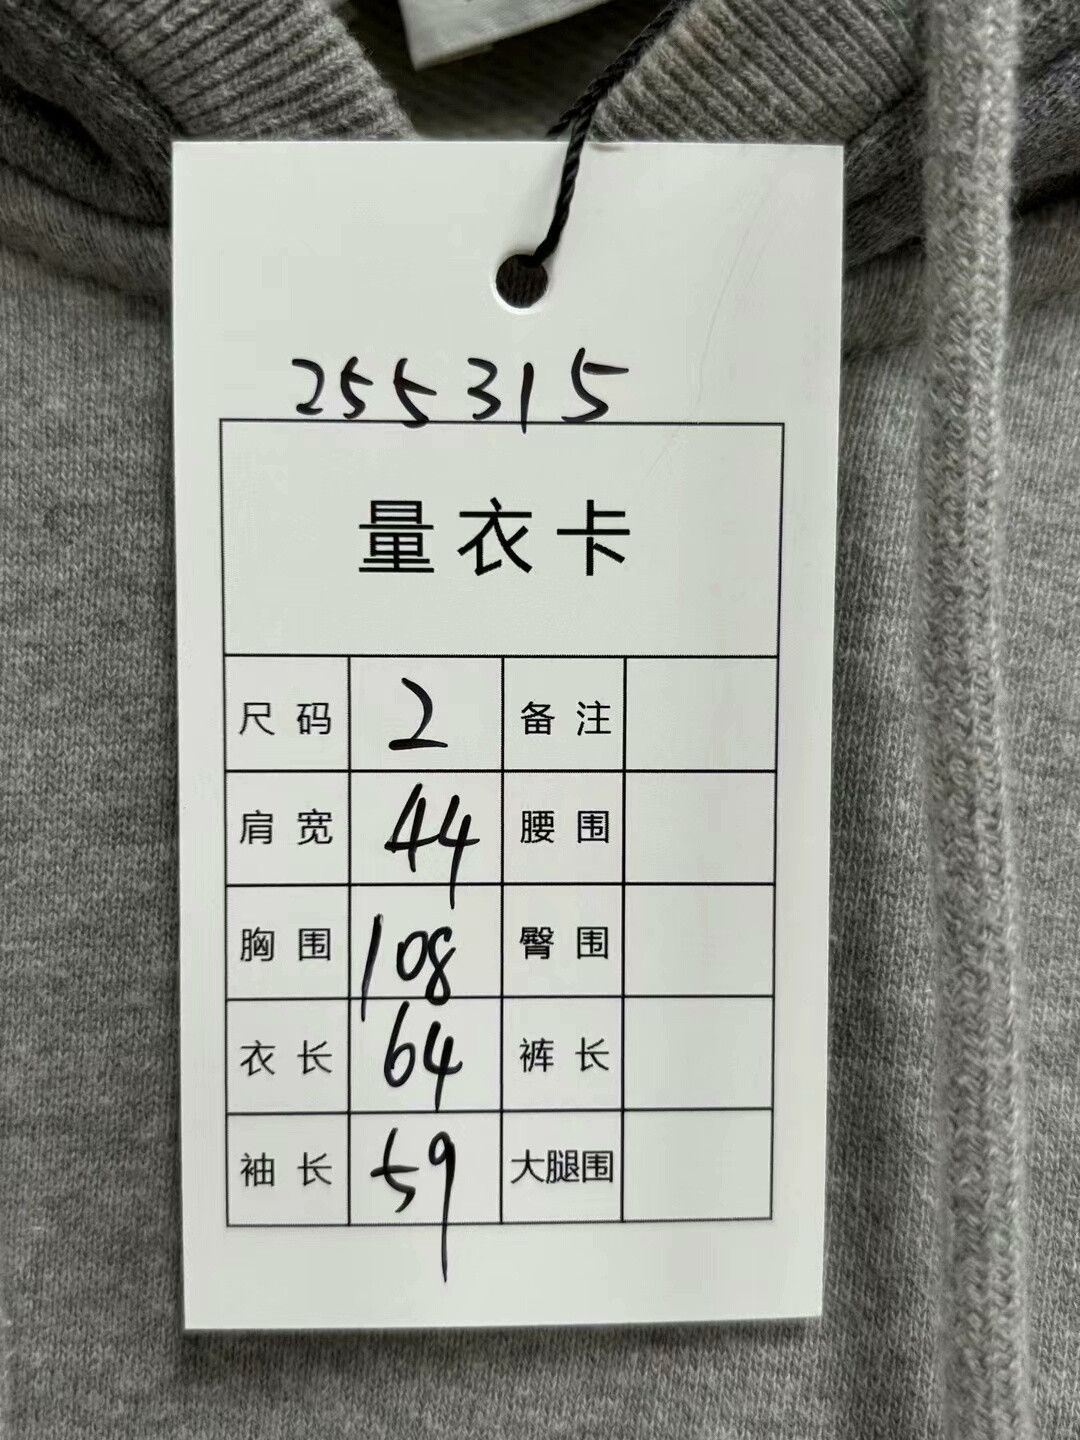 255315
量衣卡
尺码 2 备注
肩宽 44 腰围
胸围 108 臀围
衣长 64 裤长
袖长 59 大腿围